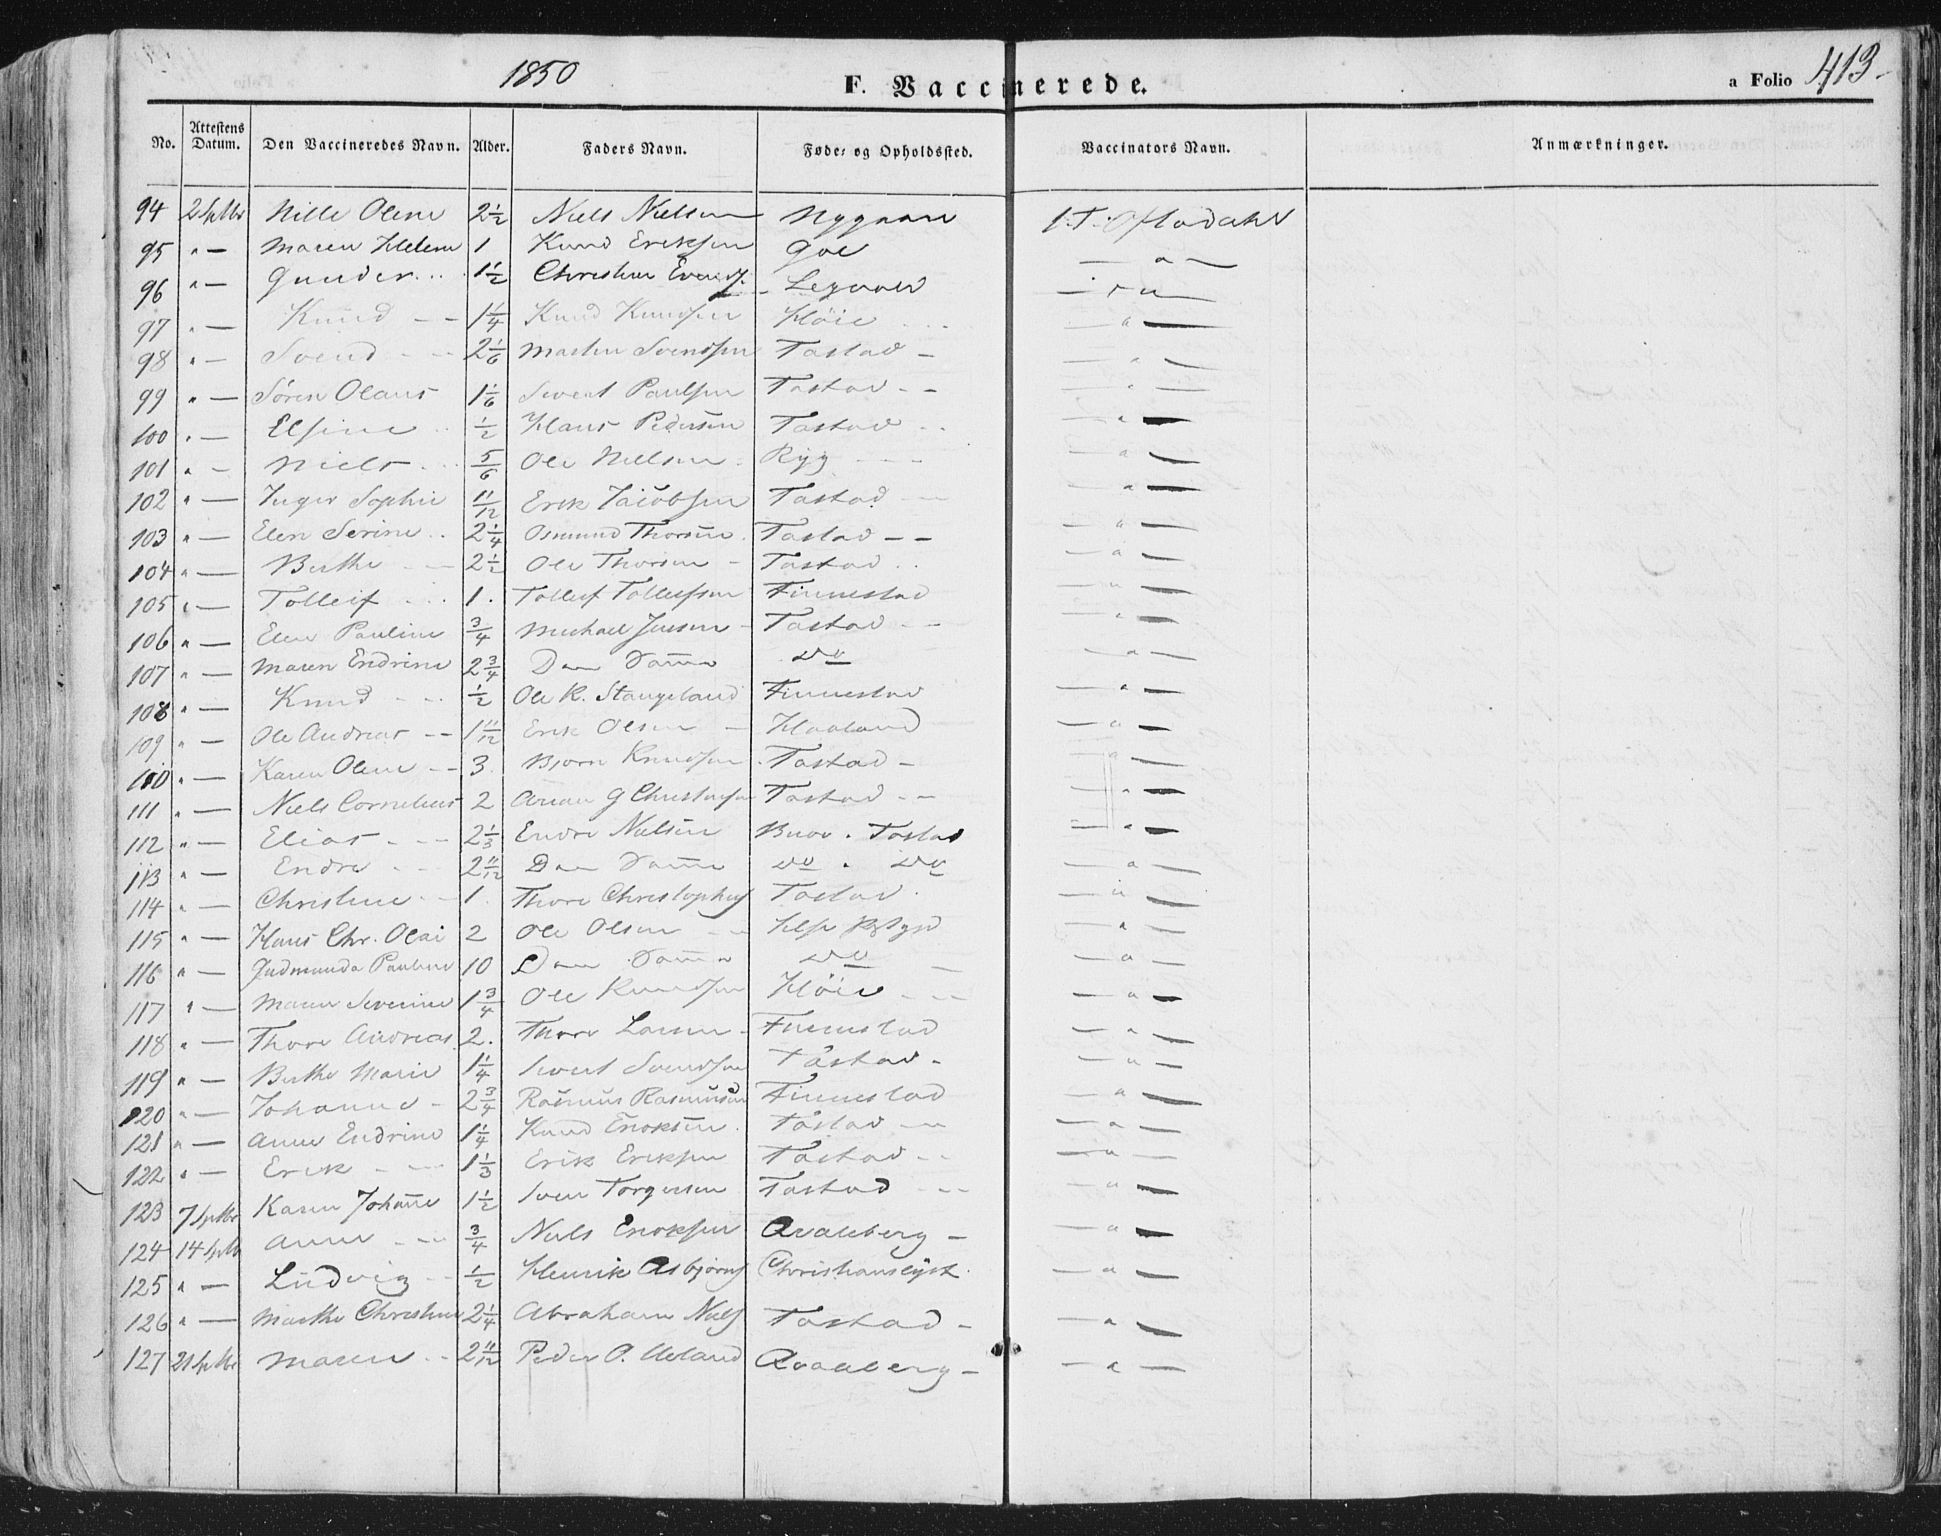 1850 F. Vaccinerede. a Folio 413.
No. Attestens Datum. Den Vaccineredes Navn. Alder. Faders Navn. Føde- og Opholdssted. Vaccinators Navn. Anmærkninger.
94 2 Sptbr Nille Olene 2 1/2 Niels Nielsen Nygaard
95 " — Maren Helene 1 Knud Eriksen Goe — " —
96 " — Gunder 1 1/2 Christian — " —
97 " — Knud — 1 1/4 Knud Knudsen Høie — " —
98 " — Svend — 2 1/6 Morten Svendsen Tastad — — " —
99 " — Søren Olaus 1 1/6 Sivert Paulsen Tastad — — " —
100 " — Elsine 1/2 Hans Pedersen Tastad — " —
101 " — Niels 5/6 Ole Nielsen Ryg — — " —
102 " — Inger Sophie 1 1/12 Erik Jacobsen Tastad — — " —
103 " — Elen Serine 2 1/4 Osmund Thorsen Tastad — — — " —
104 " — Berthe — 2 1/2 Ole Thorsen — Tastad — " —
105 " — Tolleif 1. Tolleif Tolleifsen Finnestad — " —
106 " — Elen Pauline 3/4 Michael Jensen Tastad — — " —
107 " — Maren Endrine 2 3/4 Den Samme do — " —
108 " — Knud — 1/2 Ole K. Stangeland Finnestad — " —
109 " — Ole Andreas — 1 11/12 Erik Olsen — Haaland — " —
110 " — Karen Olene — 3 Bjørn Knudsen Tastad — — " —
111 " — Niels Cornelius 2 Tastad — — " —
112 " — Elias — 2 1/3 Endre Nielsen Buøe. Tastad — " —
113 " — Endre — 2 11/12 Den Samme do . do — " —
114 " — Christine — 1. Thore Tastad. — " —
115 " — Hans Chr. Olai 2 Ole Olsen — " —
116 " — Gudmunda Pauline 10 Den Samme do — — " —
117 " — Maren Severine 1 3/4 Ole Knudsen Høie — — " —
118 " — Thore Andreas 2. Thore Larsen — Finnestad — " —
119 " — Berthe Marie 1 1/4 Sivert Svendsen Tastad — — " —
120 " — Johanne — 2 3/4 Rasmus Rasmussen Finnestad — " —
121 " — Anne Endrine 1 1/4 Knud Enoksen Tastad — — " —
122 " — Erik — 1 1/3 Erik Eriksen Tastad — — " —
123 7 Sptbr Karen Johanne 1 1/2 Sven Torgersen Tastad — — " —
124 14 Sptb Anne — 3/4 Niels Enoksen Qvaleberg — — " —
125 " — Ludvig — 1/2 Henrik Asbjørns Christianslyst. — " —
126 " — Marthe Christine 2 1/4 Abraham Niels Tastad — — " —
127 21 Sptbr Maren — 2 11/12 Peder O. Ueland Qvaleberg — — " —